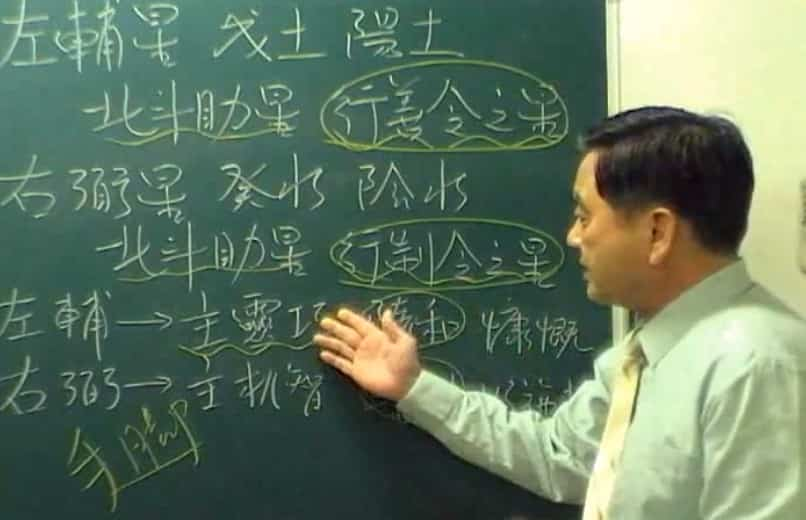 左輔星 戊土 陽土
北斗助星 行善令之星
右弼星 癸水 陰水
北斗助星 行制令之星
左輔→主靈巧 隨和 慷慨
右弼→主机智
手腳